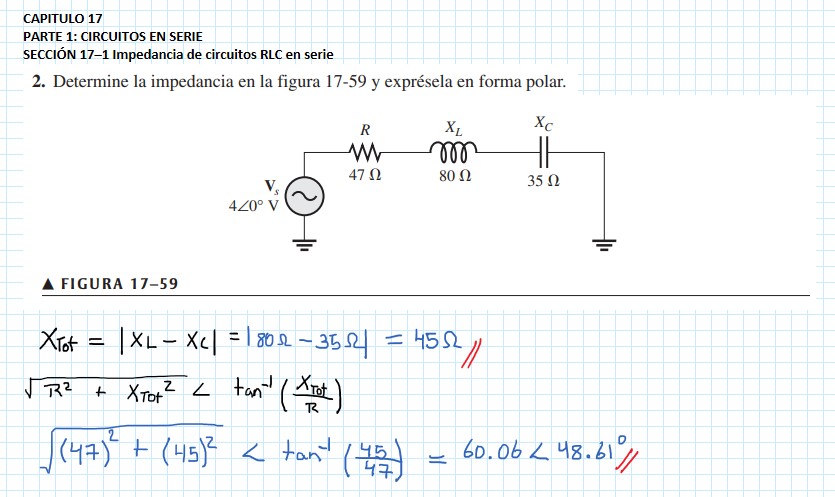 CAPITULO 17
PARTE 1: CIRCUITOS EN SERIE
SECCIÓN 17–1 Impedancia de circuitos RLC en serie
2. Determine la impedancia en la figura 17-59 y exprésela en forma polar.
R
X_L
X_C
47 Ω
80 Ω
35 Ω
V_s
4∠0° V
▲ FIGURA 17–59
X_Tot = |X_L − X_C| = |80Ω − 35Ω| = 45Ω //
√(R² + X_Tot²) < tan⁻¹ (X_Tot/R)
√((47)² + (45)²) < tan⁻¹ (45/47) = 60.06 < 48.61° //